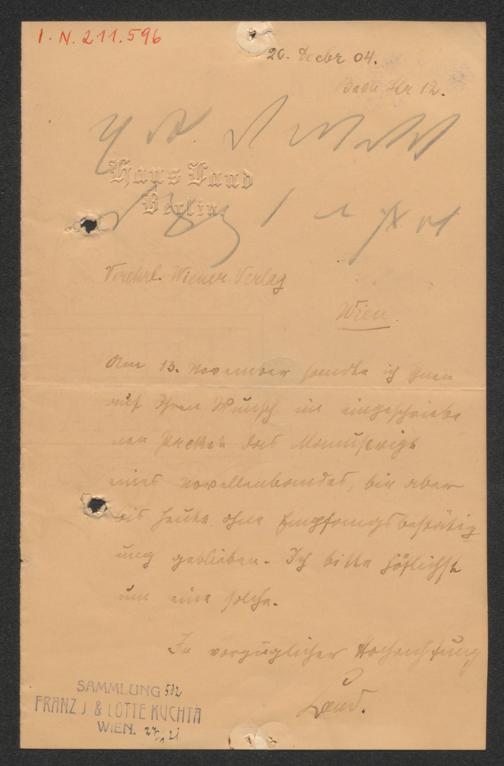 I.N. 211.596
20. Decbr 04.
12.
Hans Land
Berlin
Verehrl. Wiener Verlag
Wien.
Am 13. November sandte ich Ihnen
auf Ihren Wunsch im eingeschriebe
nen Packet das Manuscript
eines Novellenbandes, bin aber
bis heute ohne Empfangsbestätig
ung geblieben. Ich bitte höflichst
um eine solche.
In vorzüglicher Hochachtung
Land.
SAMMLUNG
FRANZ J. & LOTTE KUCHTA
WIEN.